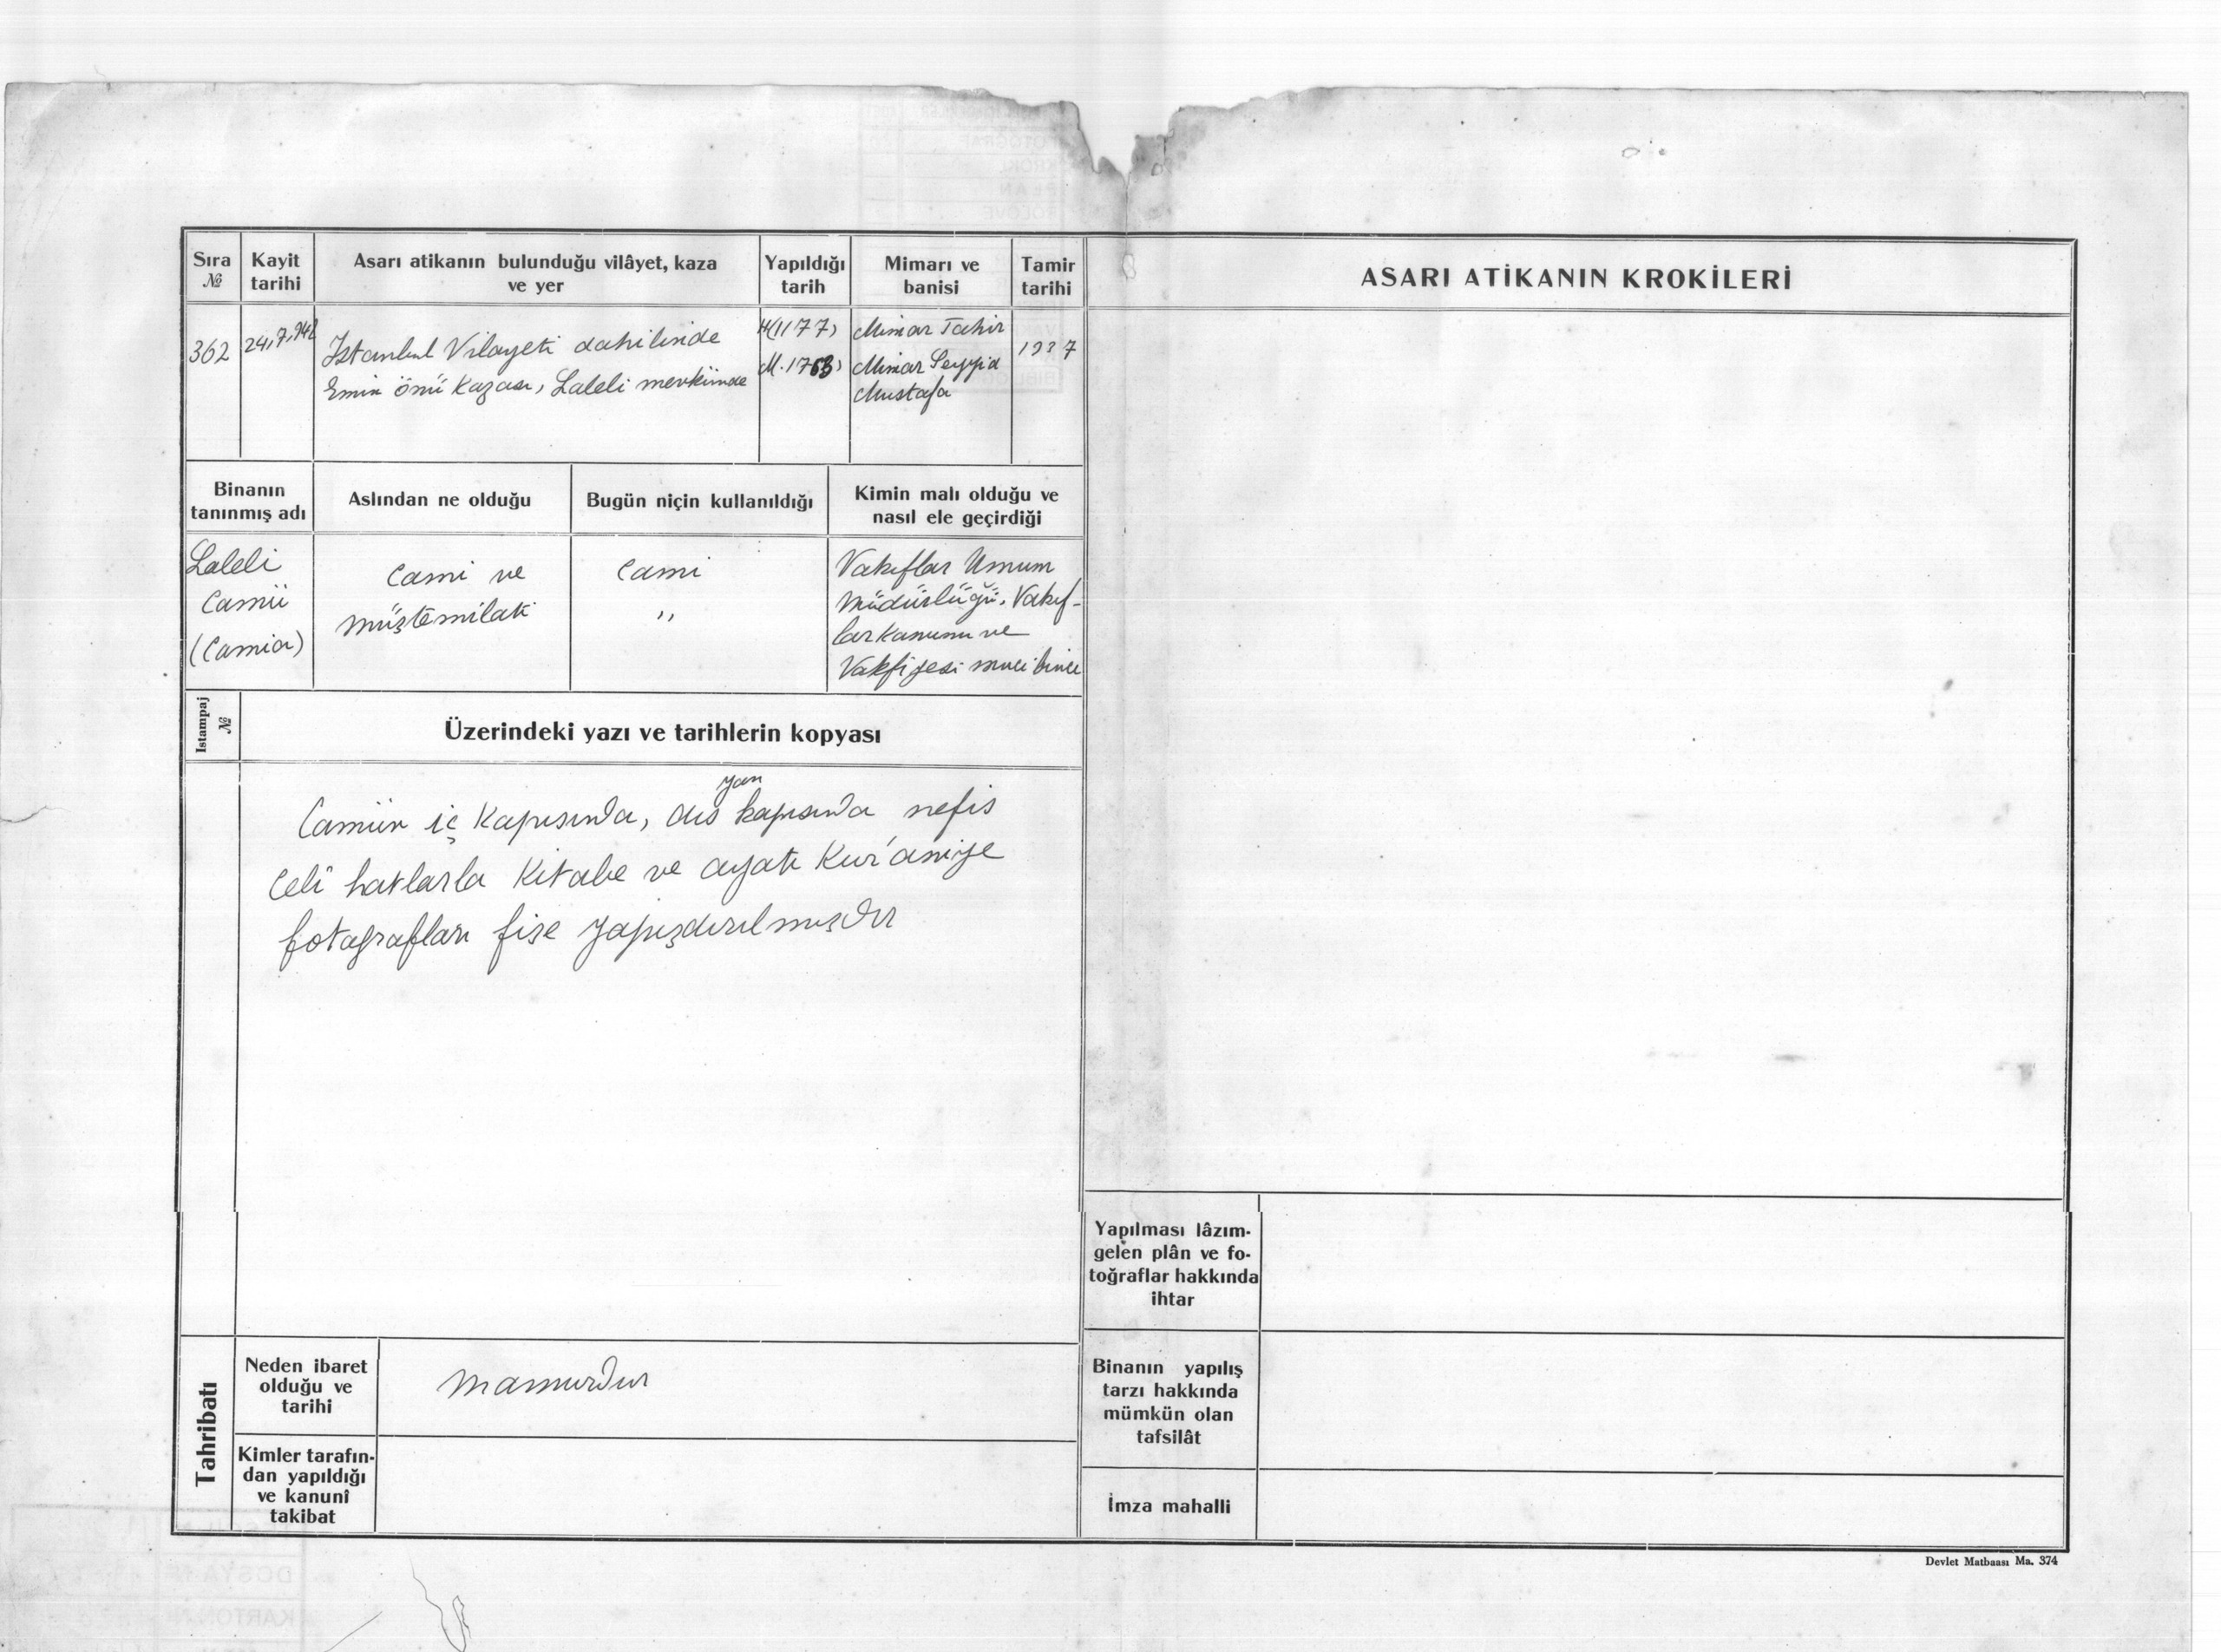 Sıra
№
Kayit
tarihi
Asarı atikanın bulunduğu vilâyet, kaza
ve yer
Yapıldığı
tarih
Mimarı ve
banisi
Tamir
tarihi
ASARI ATİKANIN KROKİLERİ
362
İstanbul Vilayeti dahilinde
Emin önü Kazası, Laleli mevkiinde
H(1177)
M.1763)
Mimar Tahir
Mimar Seyyid
Mustafa
1937
Binanın
tanınmış adı
Aslından ne olduğu
Bugün niçin kullanıldığı
Kimin malı olduğu ve
nasıl ele geçirdiği
Laleli
Camii
Cami ve
müştemilatı
Cami
,,
Vakıflar Umum
Müdürlüğü. Vakıf-
lar kanunu ve
Vakfiyesi mucibince
Istampaj
№
Üzerindeki yazı ve tarihlerin kopyası
yan
Camiin iç Kapısında, dış kapısında nefis
Celi hatlarla Kitabe ve ayatı Kur'aniye
fotografları fişe yapışdırılmışdır
Tahribatı
Neden ibaret
olduğu ve
tarihi
mamurdur
Kimler tarafın-
dan yapıldığı
ve kanunî
takibat
Yapılması lâzım-
gelen plân ve fo-
toğraflar hakkında
ihtar
Binanın yapılış
tarzı hakkında
mümkün olan
tafsilât
İmza mahalli
Devlet Matbaası Ma. 374